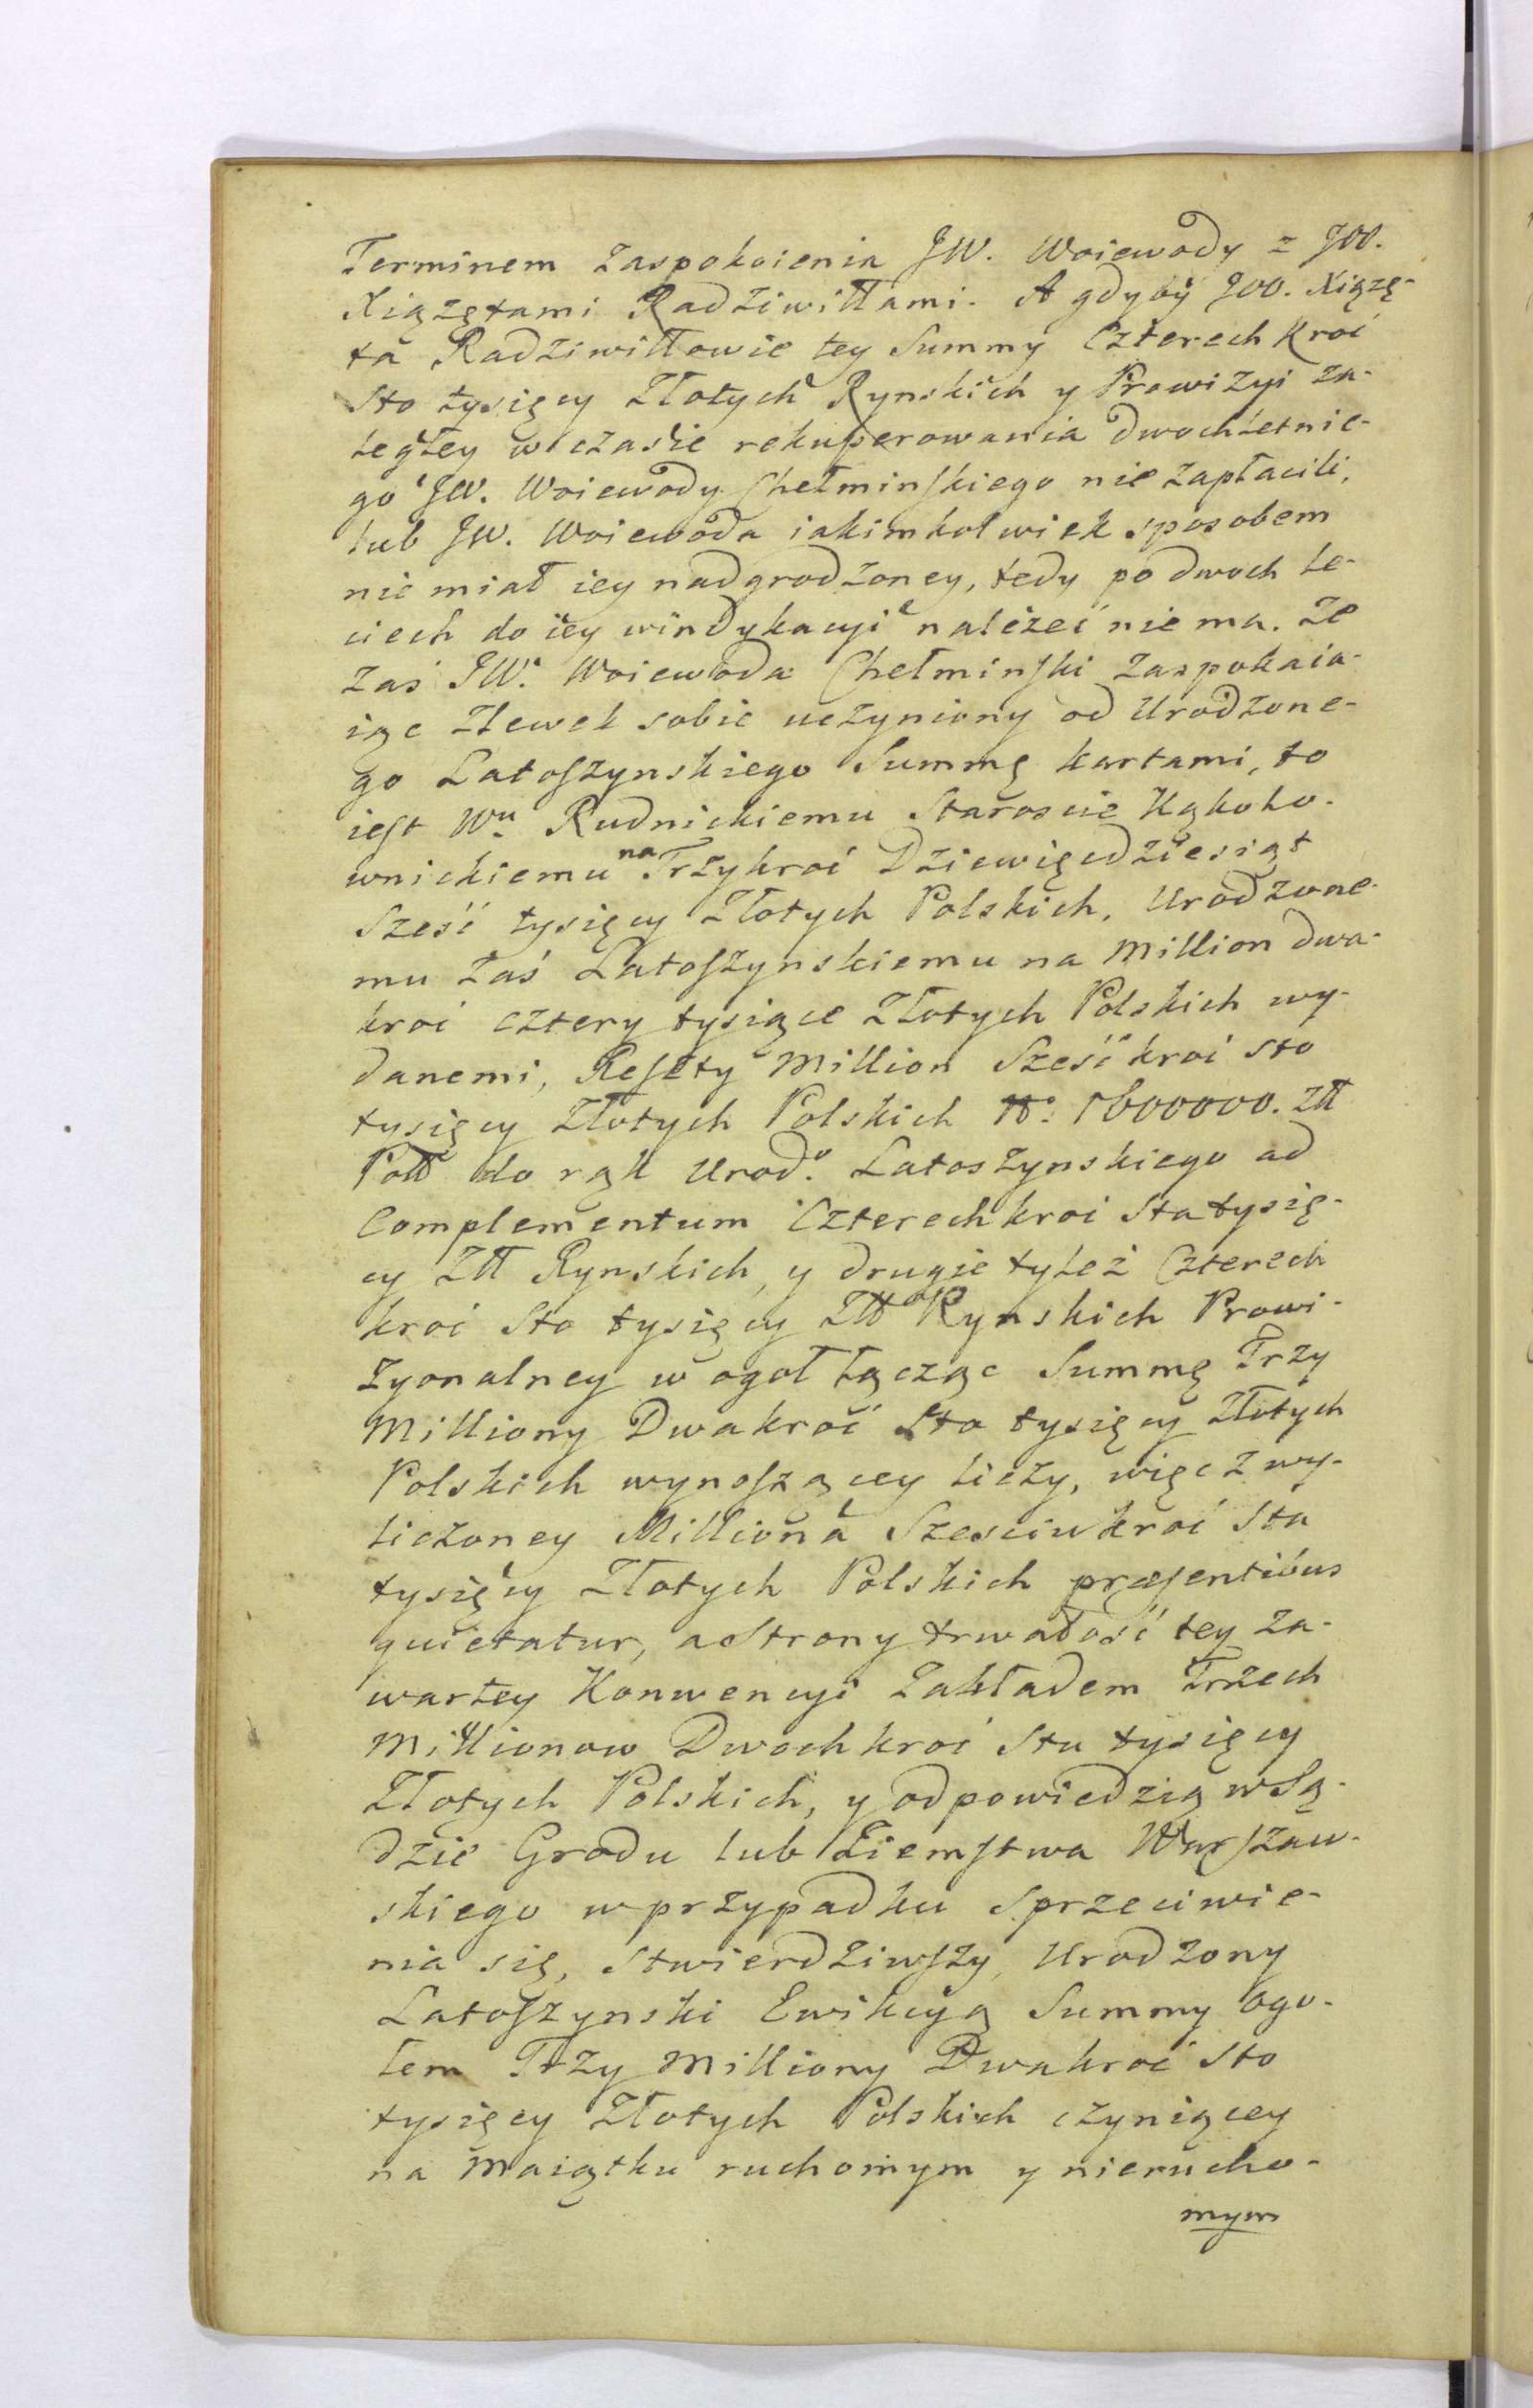 Terminem zaspokoienia JW. Woiewody z JOO.
Xiążętami Radziwiłłami. A gdyby JOO. Xiążę-
ta Radziwiłłowie tey Summy Czterech kroć
Sto tysięcy Złotych Rynskich y Prowizyi za-
ległey w czasie rekuperowania dwochletnie-
go JW. Woiewody Chełminskiego nie zapłacili,
lub JW. Woiewoda iakimkolwiek sposobem
nie miał iey nadgrodzoney, tedy po dwoch le-
ciech do iey windykacyi należeć nie ma. Ze
zaś JW. Woiewoda Chełminski zaspokaia-
iąc zlewek sobie uczyniony od Urodzone-
go Latoszynskiego Summę kartami, to
iest Wu Rudnickiemu Staroscie Kąkolo-
wnickiemu na Trzykroć Dziewięcdziesiąt
Sześć tysięcy Złotych Polskich, Urodzone-
mu zaś Latoszynskiemu na Million dwa-
kroć cztery tysiące Złotych Polskich wy-
danemi, Reszty Million Sześć kroć sto
tysięcy Złotych Polskich No: 1600000. Złł
Poll do rąk Urodo. Latoszynskiego ad
Complementum Czterechkroć Sta tysię-
cy Złł Rynskich, y drugie tyleż Czterech
kroć Sto tysięcy Złł Rynskich Prowi-
zyonalney w ogoł łącząc Summę Trzy
Milliony Dwakroć Sto tysięcy Złotych
Polskich wynoszącey liczy, więc z wy-
liczoney Milliona Szesciukroć Sta
tysięcy Złotych Polskich præsentibus
quietatur, a Strony trwałość tey za-
wartey Konwencyi Zakładem Trzech
Millionow Dwochkroć Stu tysięcy
Złotych Polskich, y odpowiedzią w Są-
dzie Grodu lub Ziemstwa Warszaw-
skiego w przypadku Sprzeciwie-
nia się, stwierdziwszy, Urodzony
Latoszynski Ewikcyą Summy ogo-
łem Trzy Milliony Dwakroć Sto
tysięcy Złotych Polskich czyniącey
na Maiątku ruchomym y nierucho-
mym